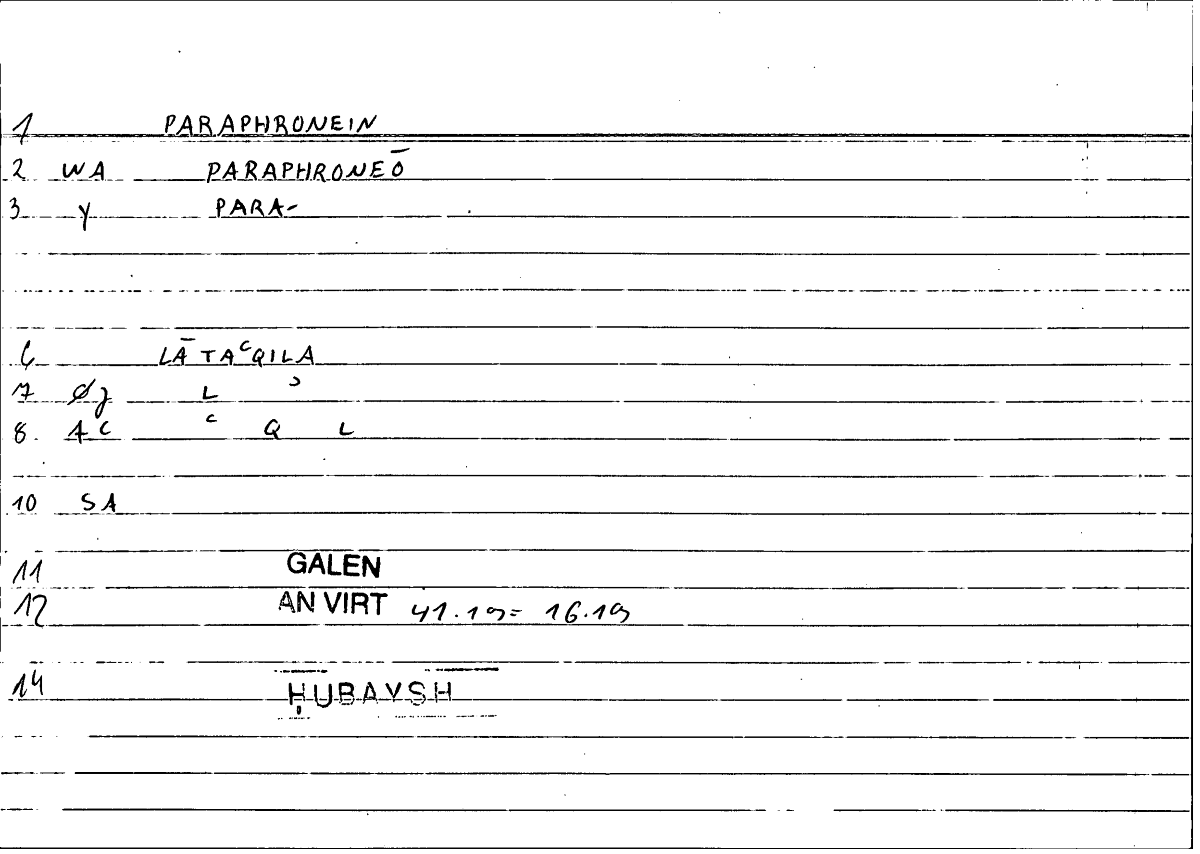 1 PARAPHRONEIN
2 WA PARAPHRONEŌ
3 Y PARA-
6 LĀ TAᶜQILA
7 Øʒ L ᵓ
8. AC ᶜ Q L
10 SA
11 GALEN
12 AN VIRT 41.19 = 16.19
14 ḤUBAYSH